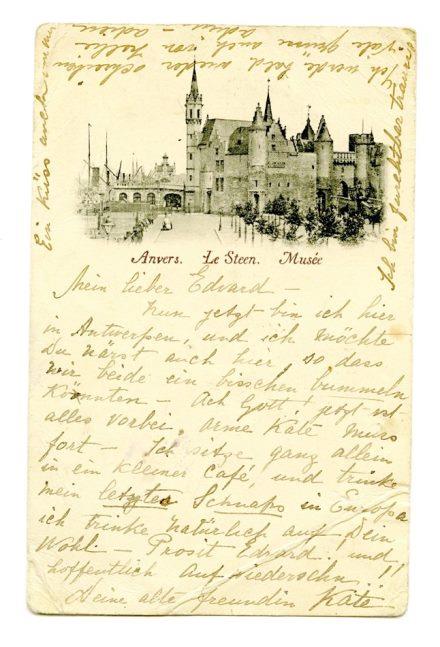 Anvers. Le Steen. Musée
Mein lieber Edvard —
Nun jetzt bin ich hier
in Antwerpen, und ich möchte
Du wärst auch hier, so dass
wir beide ein bisschen bummeln
könnten — Ach Gott! jetzt ist
alles vorbei, arme Kate muss
fort — Ich sitze ganz allein
in ein kleiner Café, und trinke
mein letzter Schnaps in Europa
ich trinke natürlich auf Dein
Wohl — Prosit Edvard und
hoffentlich auf wiedersehn!!
Deine alte freundin Kate
Ich bin furchtbar traurig
Ich werde bald wieder schreiben
grüsse auch von
adieu — adieu
Ein Küss auch